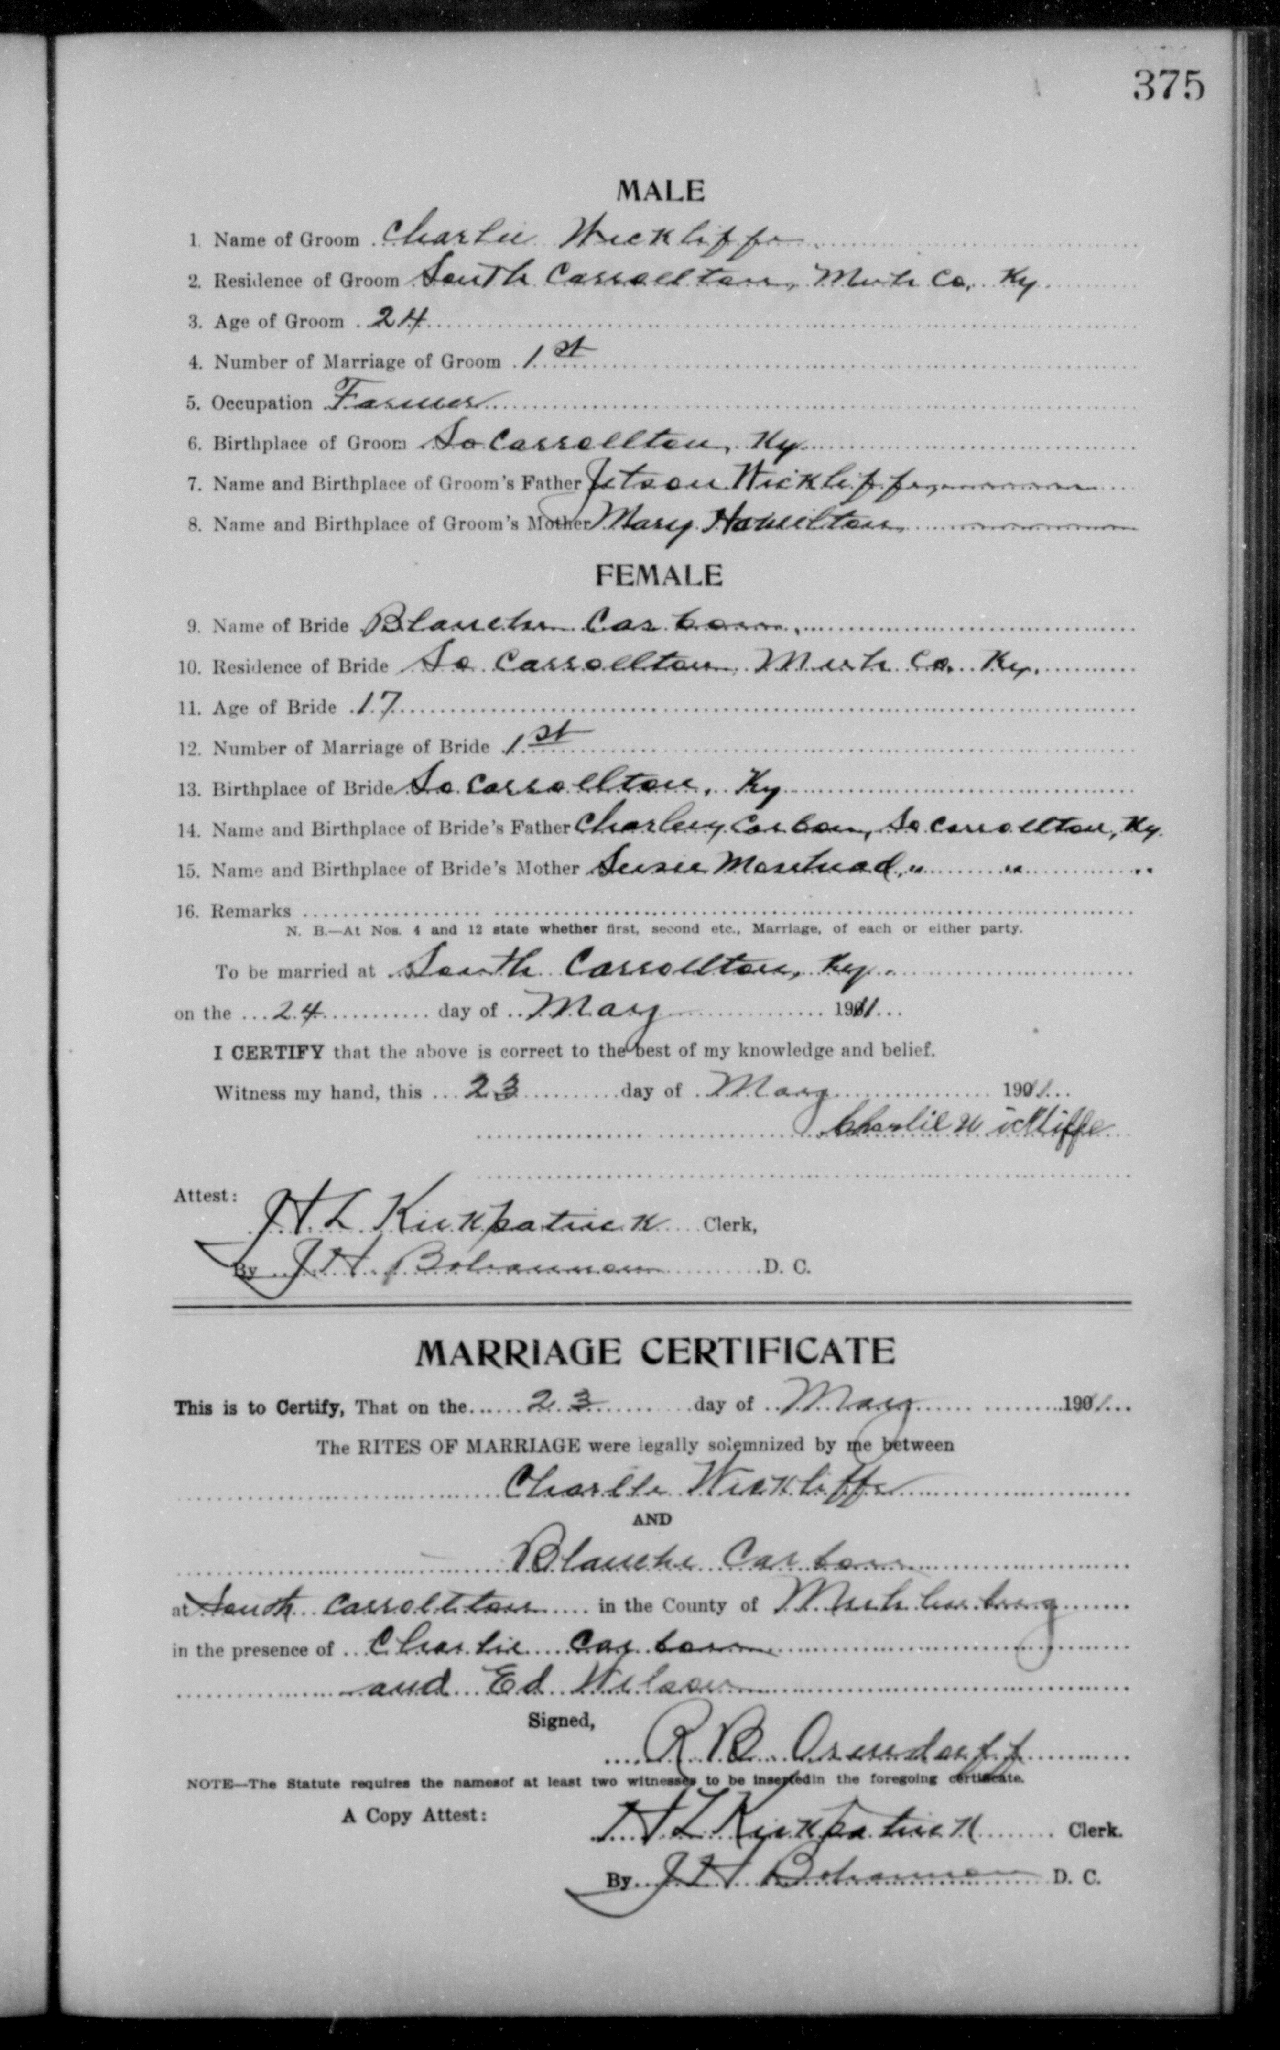 375
MALE
1. Name of Groom Charlie Wickliffe
2. Residence of Groom South Carrollton, Muh Co. Ky
3. Age of Groom 24
4. Number of Marriage of Groom 1st
5. Occupation Farmer
6. Birthplace of Groom So Carrollton, Ky
7. Name and Birthplace of Groom's Father Jetson Wickliffe
8. Name and Birthplace of Groom's Mother Mary Hamilton
FEMALE
9. Name of Bride Blanche
10. Residence of Bride So Carrollton, Muh Co. Ky.
11. Age of Bride 17
12. Number of Marriage of Bride 1st
13. Birthplace of Bride So Carrollton, Ky
14. Name and Birthplace of Bride's Father Charley So Carrollton, Ky.
15. Name and Birthplace of Bride's Mother Susie Morehead, " " "
16. Remarks
N. B.—At Nos. 4 and 12 state whether first, second etc., Marriage, of each or either party.
To be married at South Carrollton, Ky.
on the 24 day of May 1911
I CERTIFY that the above is correct to the best of my knowledge and belief.
Witness my hand, this 23 day of May 1911
Charlie Wickliffe
Attest:
H L Kirkpatrick Clerk,
By J H Bohannon D. C.
MARRIAGE CERTIFICATE
This is to Certify, That on the 23 day of May 1911
The RITES OF MARRIAGE were legally solemnized by me between
Charlie Wickliffe
AND
Blanche
at South Carrollton in the County of Muhlenberg
in the presence of Charlie
and Ed Wilson
Signed,
R B Orendorff
NOTE—The Statute requires the namesof at least two witnesses to be insertedin the foregoing certificate.
A Copy Attest:
H L Kirkpatrick Clerk.
By J H Bohannon D. C.